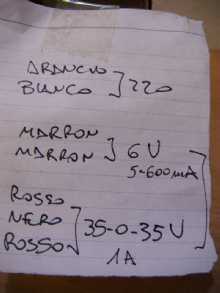 ARANCIO
BIANCO ] 220
MARRON
MARRON ] 6V
5-600mA
ROSSO
NERO ] 35-0-35V
ROSSO
1A